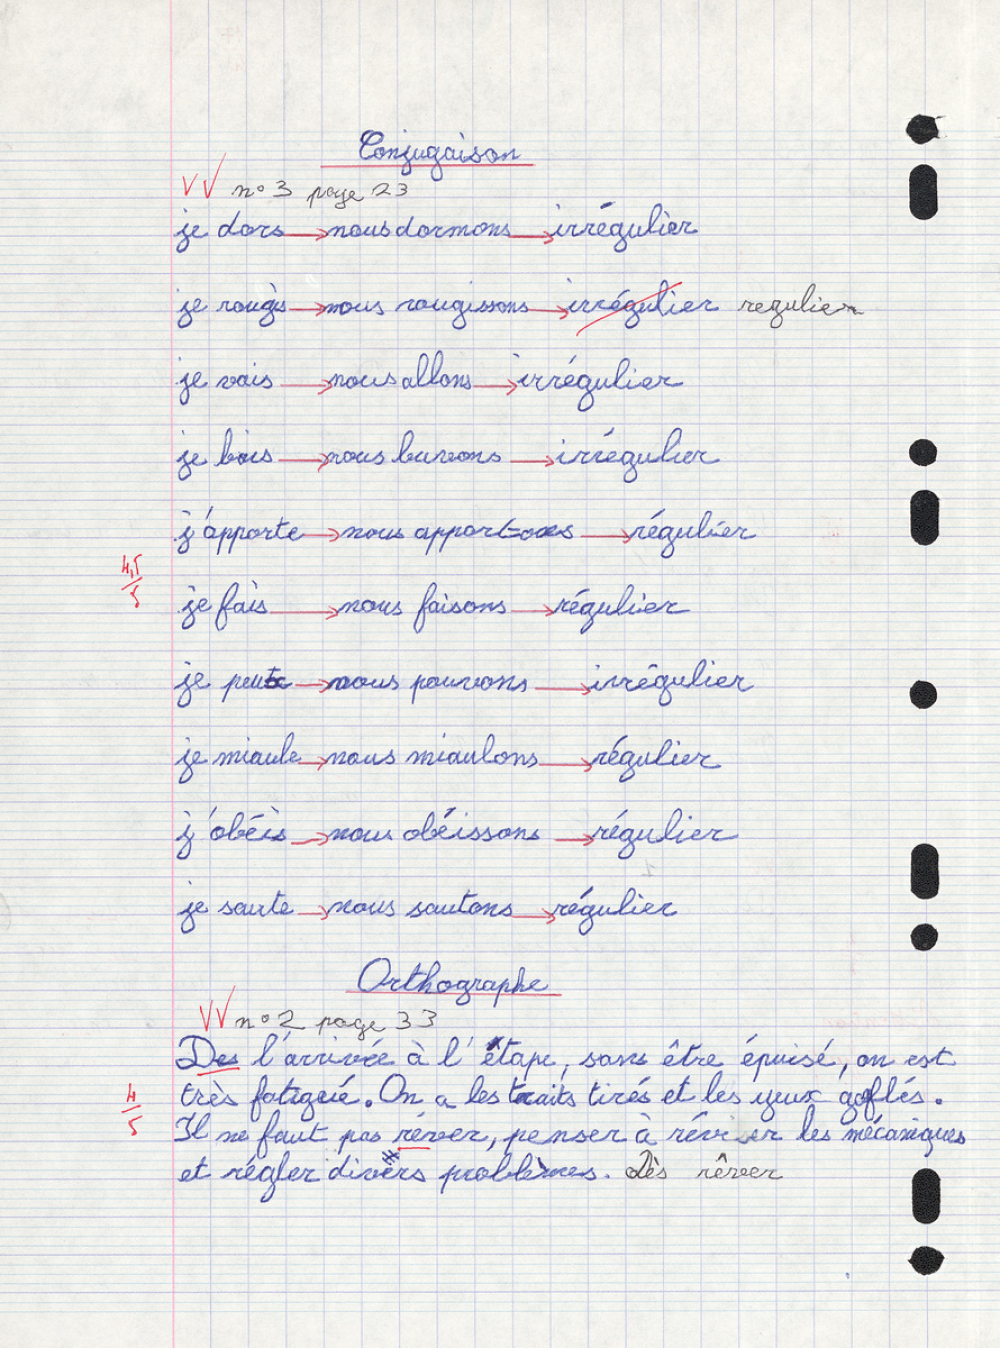 Conjugaison
VV n° 3 page 23
je dors → nous dormons → irrégulier
je rougis → nous rougissons → irrégulier regulier
je vais → nous allons → irrégulier
je bois → nous buvons → irrégulier
j'apporte → nous apportons → régulier
4,5/5
je fais → nous faisons → régulier
je peux → nous pouvons → irrégulier
je miaule → nous miaulons → régulier
j'obéis → nous obéissons → régulier
je saute → nous sautons → régulier
Orthographe
VV n° 2 page 33
Des l'arrivée à l'étape, sans être épuisé, on est
4/5
très fatigué. On a les traits tirés et les yeux gonflés.
Il ne faut pas réver, penser à réviser les mécaniques
et régler divers problèmes. Dès rêver